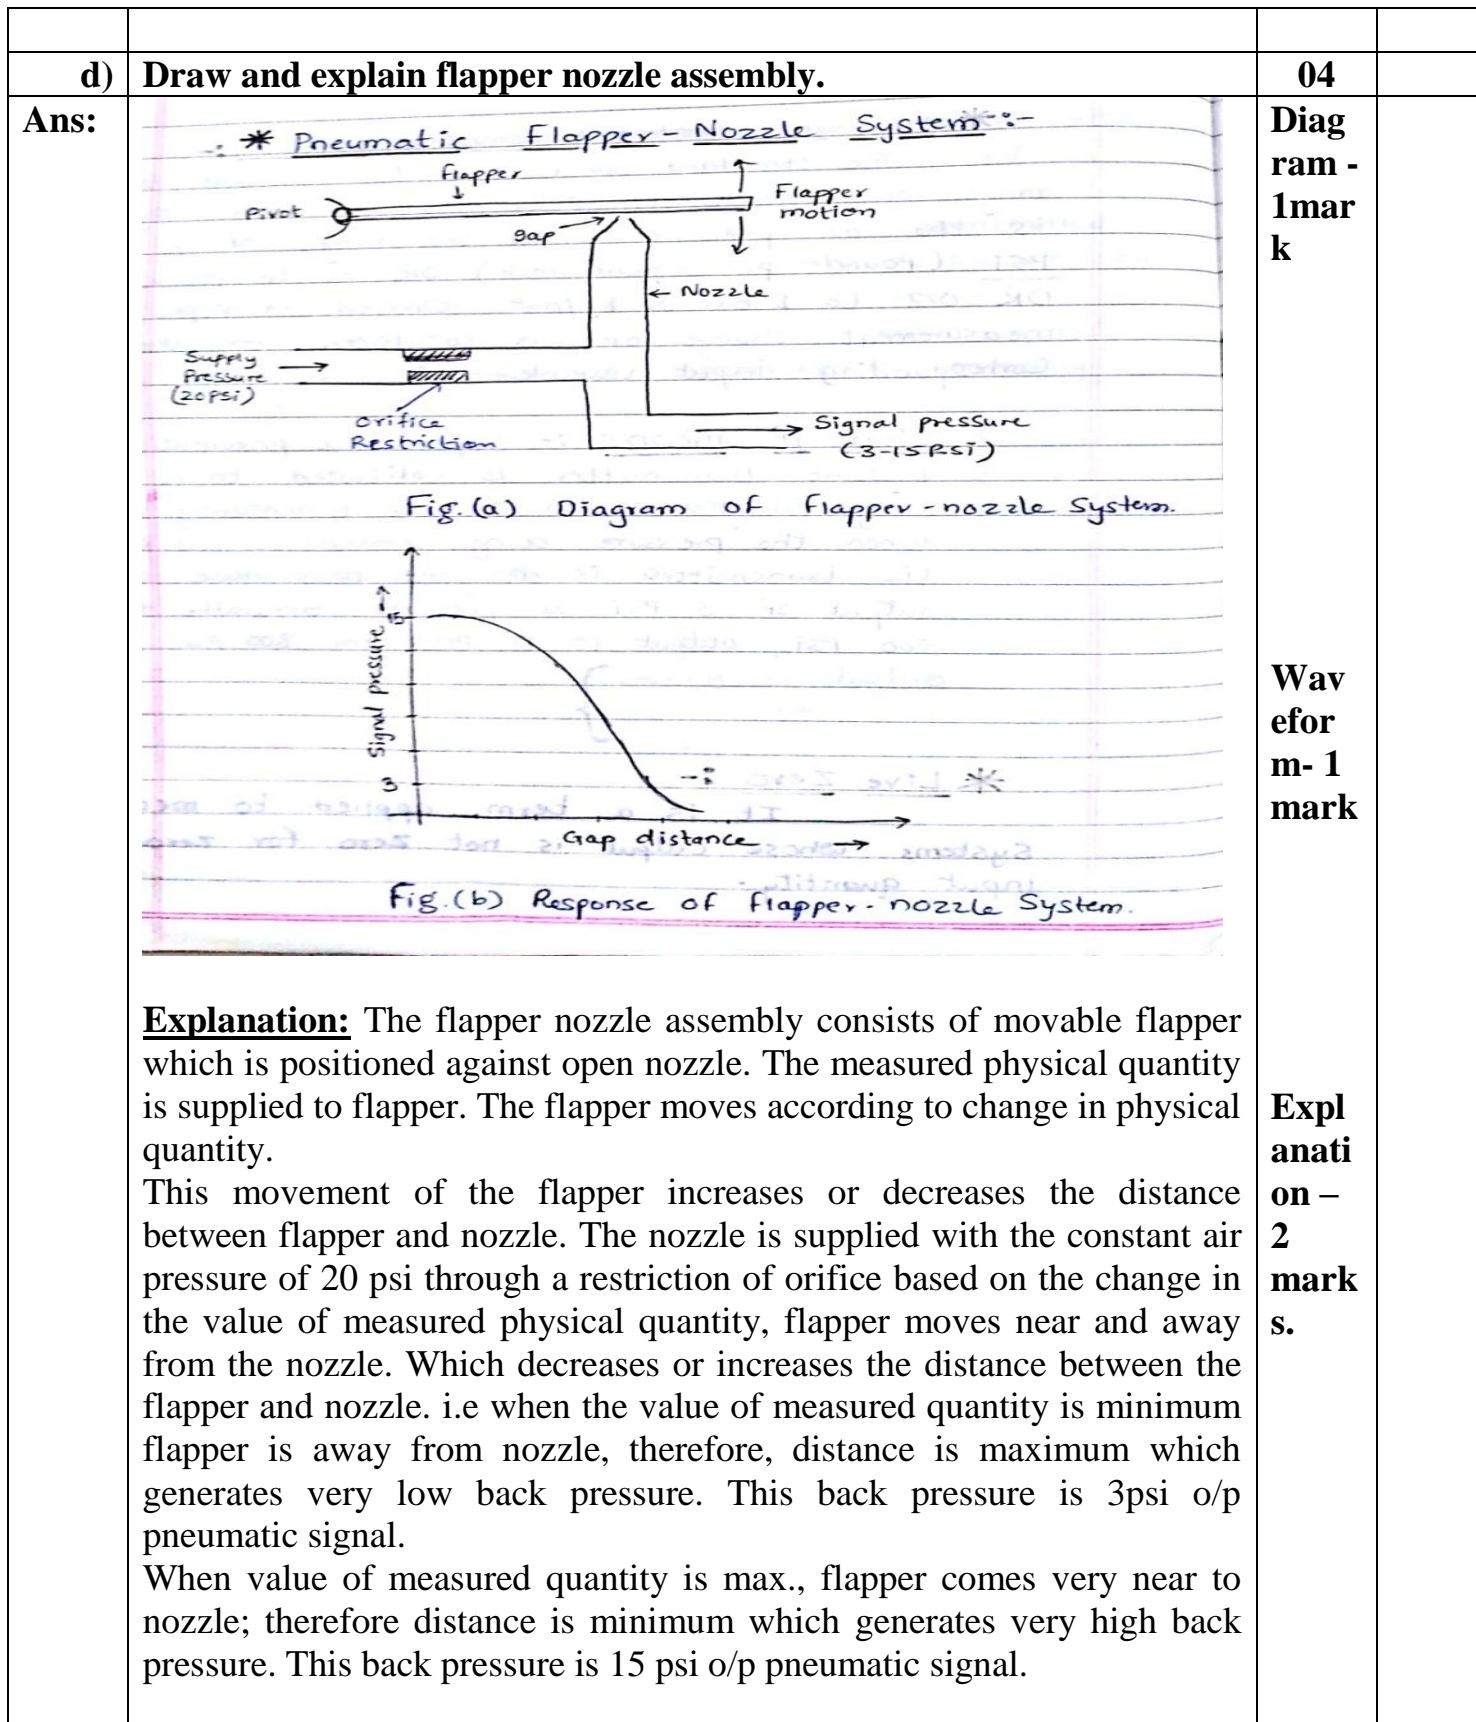 d) Draw and explain flapper nozzle assembly. 04
Ans:
Diag
ram -
1mar
k
-: * Pneumatic Flapper - Nozzle System -:-
Flapper
Pivot
Flapper
motion
gap
Nozzle
Supply
Pressure
(20 psi)
Orifice
Restriction
Signal pressure
(3-15 Psi)
Fig. (a) Diagram of flapper - nozzle System.
Signal pressure
15
3
Gap distance
Fig. (b) Response of flapper - nozzle System.
Wav
efor
m- 1
mark
Explanation: The flapper nozzle assembly consists of movable flapper
which is positioned against open nozzle. The measured physical quantity
is supplied to flapper. The flapper moves according to change in physical
quantity.
This movement of the flapper increases or decreases the distance
between flapper and nozzle. The nozzle is supplied with the constant air
pressure of 20 psi through a restriction of orifice based on the change in
the value of measured physical quantity, flapper moves near and away
from the nozzle. Which decreases or increases the distance between the
flapper and nozzle. i.e when the value of measured quantity is minimum
flapper is away from nozzle, therefore, distance is maximum which
generates very low back pressure. This back pressure is 3psi o/p
pneumatic signal.
When value of measured quantity is max., flapper comes very near to
nozzle; therefore distance is minimum which generates very high back
pressure. This back pressure is 15 psi o/p pneumatic signal.
Expl
anati
on –
2
mark
s.